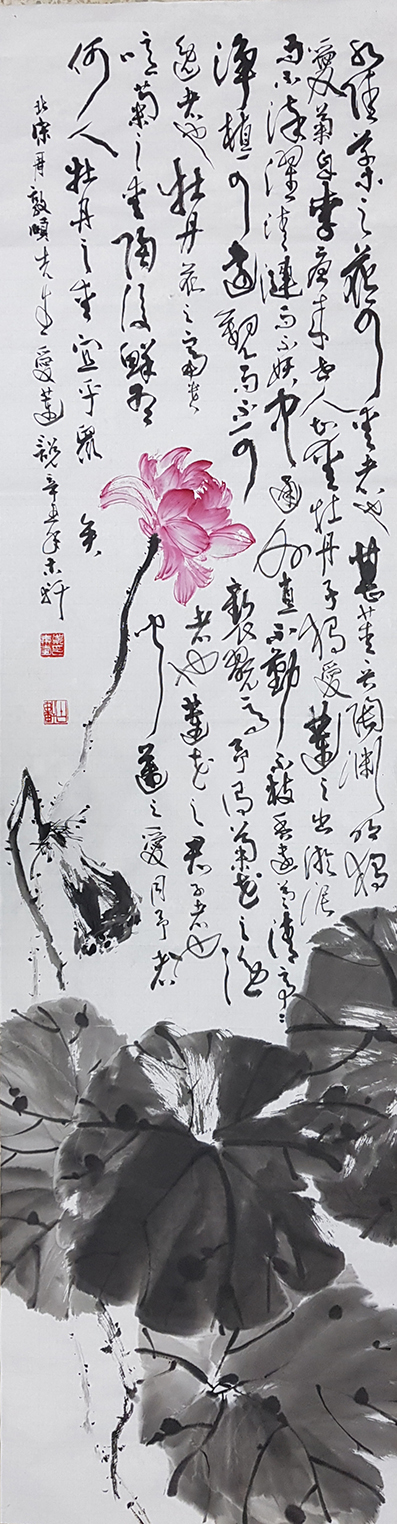 水陸草木之花可愛者甚蕃晉陶淵明獨
愛菊自李唐來世人盛愛牡丹予獨愛蓮之出淤泥
而不染濯清漣而不妖中通外直不蔓不枝香遠益清亭亭
淨植可遠觀而不可褻翫焉予謂菊花之隱
逸者也牡丹花之富貴者也蓮花之君子者也
噫菊之愛陶後鮮有聞蓮之愛同予者
何人牡丹之愛宜乎眾矣
北宋周敦頤先生愛蓮說辛丑年